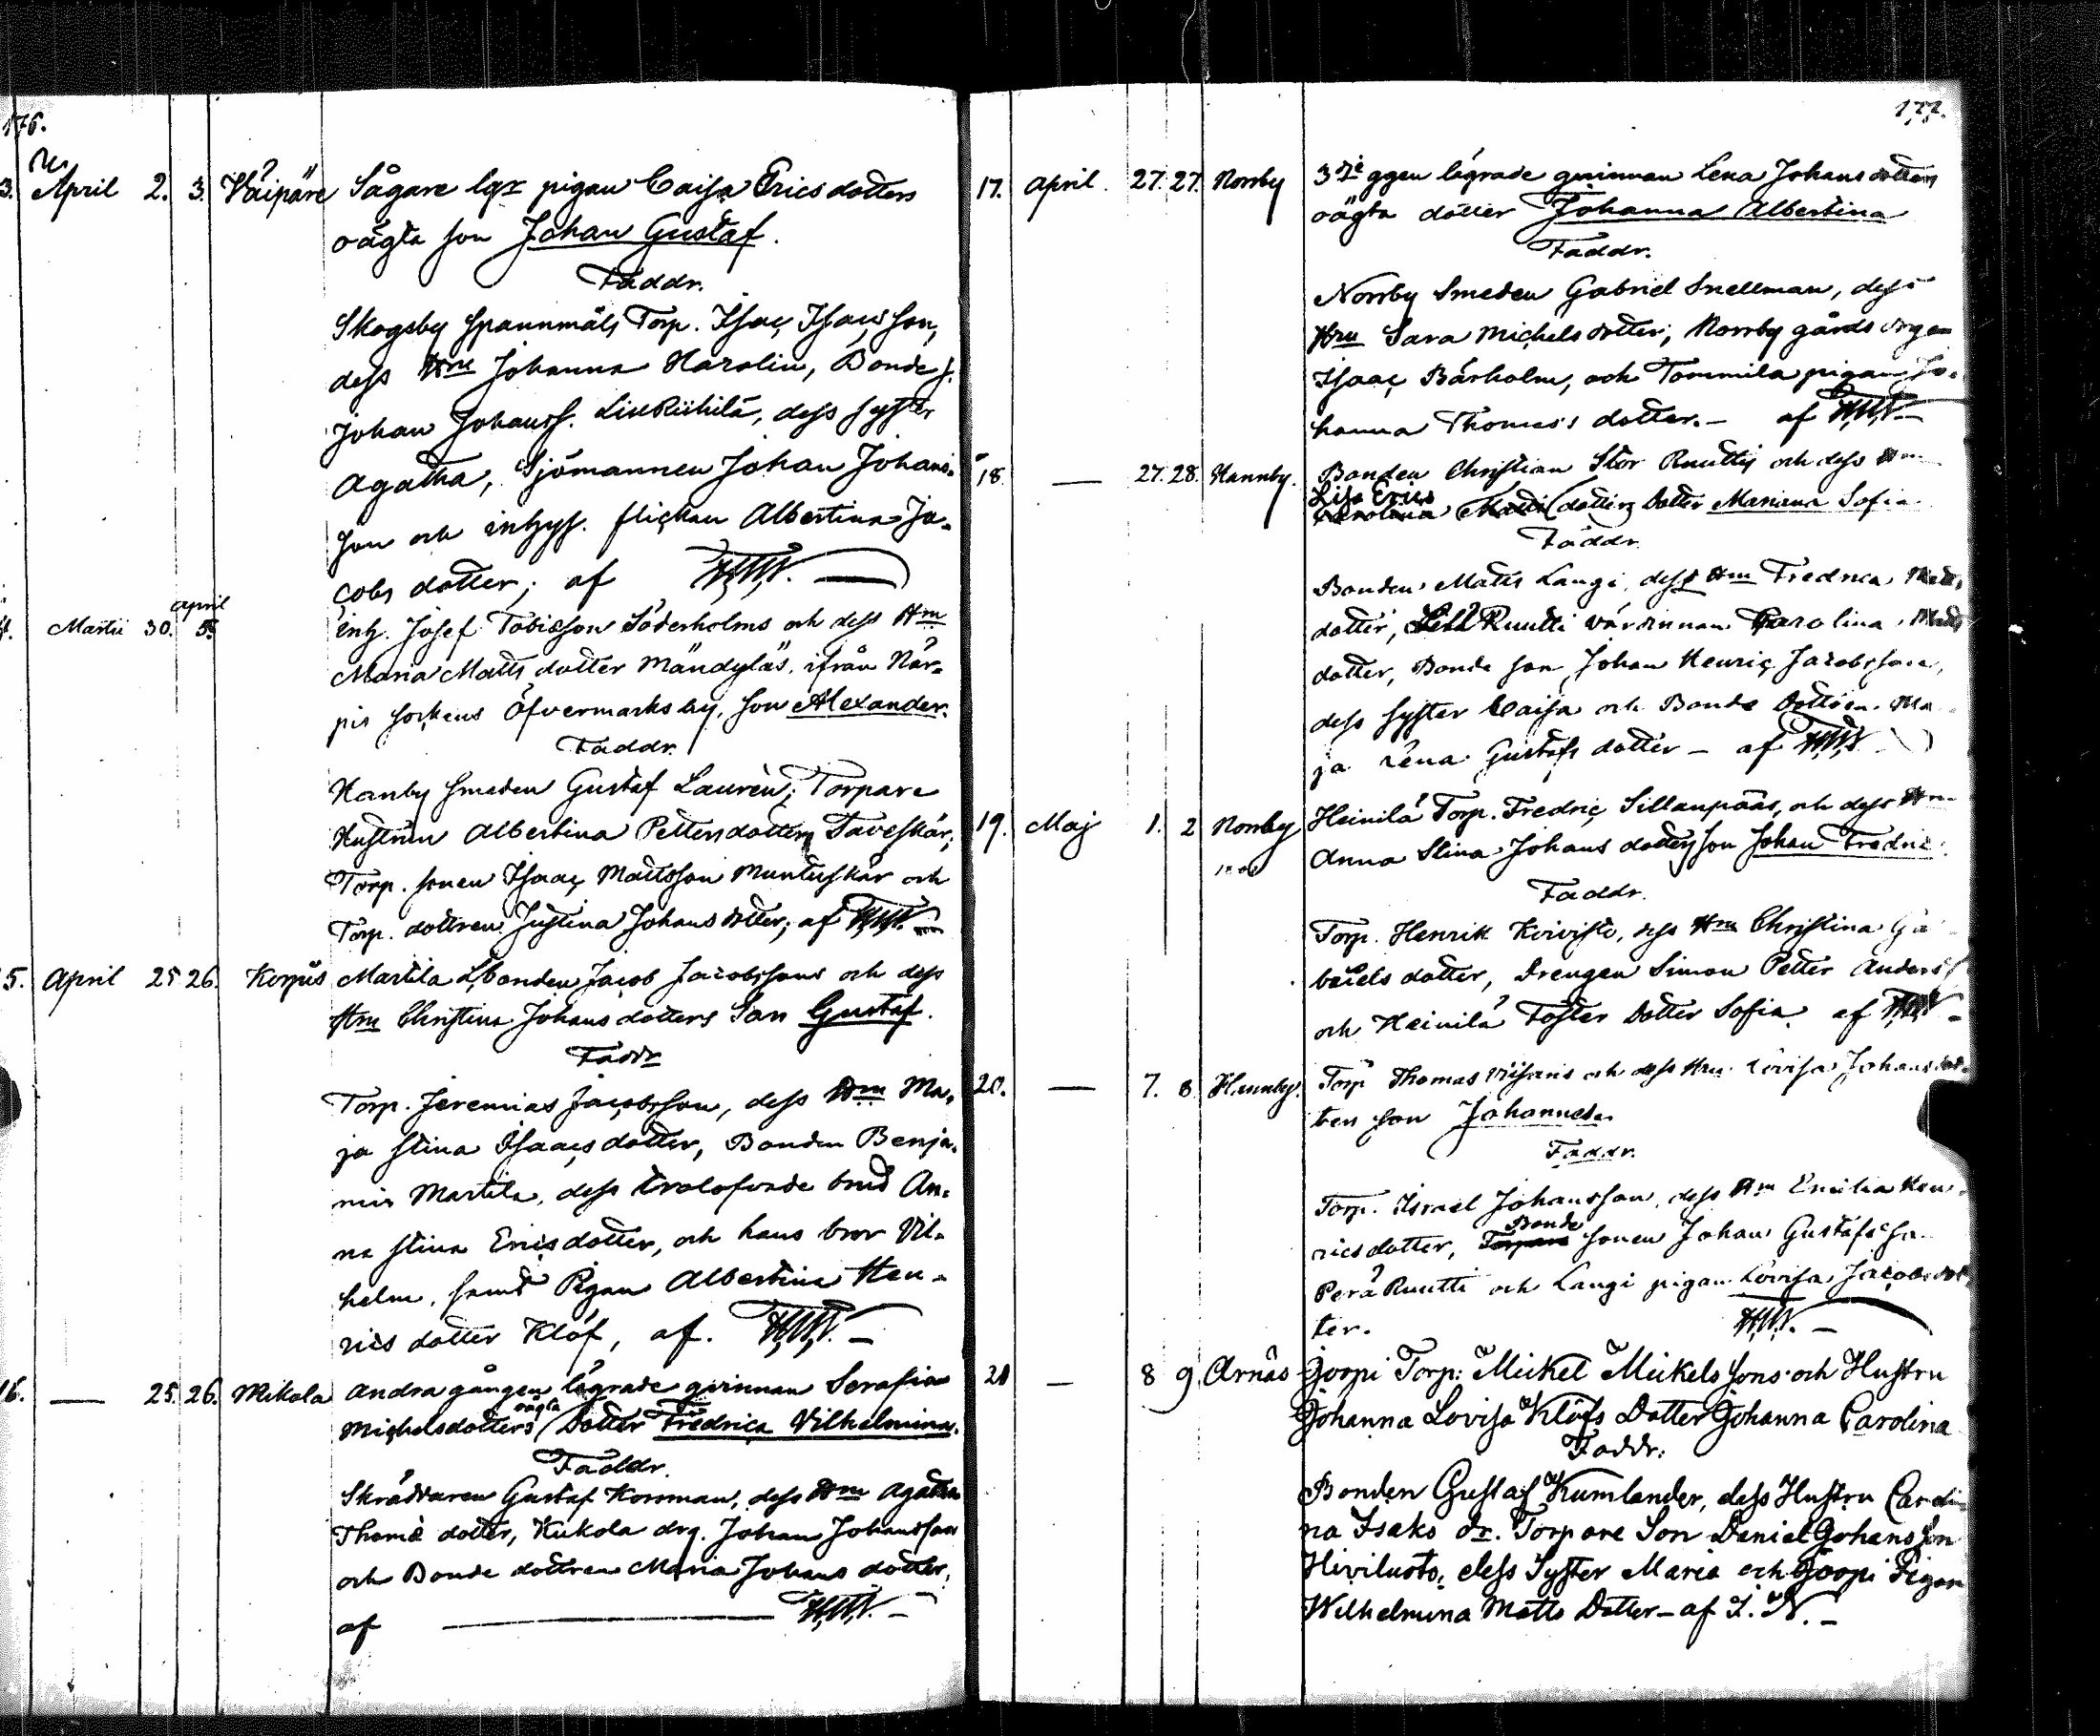 176.
3. April 2. 3. Väipäre Sågare lgr pigan Caisa Ericsdotters
oägta son Johan Gustaf.
Faddr.
Skogsby spannmåls Torp. Isac Isacsson,
dess Hru Johanna Harolin, Bonde s.
Johan Johanss. LillRiihilä, dess syster
Agatha, Sjömannen Johan Johans-
son och inhys. flickan Albertina Ja-
cobs dotter; af
April
Martii 30. 5. inh. Josef Tobiasson Söderholms och dess Hru
Maria Matts dotter Mändyläs, ifrån När-
pis sockens Öfvermarks by, son Alexander.
Faddr.
Hanby smeden Gustaf Laurén; Torpare
Hustrun Albertina Pettersdotter Taveskär;
Torp. sonen Isaac Mattsson Muntuskär och
Torp. dottren Justina Johansdotter; af
5. April 25 26. Korpus Martila L. bonden Jacob Jacobssons och dess
Hru Christina Johansdotters Son Gustaf.
Faddr
Torp. Jeremias Jacobsson, dess Hru Ma-
ja Stina Isaacsdotter, Bonden Benja-
min Martila, dess trolofvade brud An-
na Stina Ericsdotter, och hans bror Vil-
helm, samt Pigan Albertina Hen-
rics dotter Klöf, af.
16. — 25. 26. Mikola Andra gången lägrade qvinnan Serafia
oägta
Michelsdotters Dotter Fredrica Vilhelmina.
Faddr.
Skräddaren Gustaf Korsman, dess Hru Agatha
Thomæ dotter, Kukola drg. Johan Johansson
och Bonde dottren Maria Johans dotter,
af
177.
17. April. 27. 27. Norrby 3dje ggen lägrade qvinnan Lena Johansdotters
oägta dotter Johanna Albertina
Faddr.
Norrby Smeden Gabriel Snellman, dess
Hru Sara Michelsdotter; Norrby gårds drgen
Isaac Bärholm, och Tommila pigan Jo-
hanna Thomas's dotter.— af
18. — 27. 28. Hannby. Bonden Christian Stor Ruuttis och dess Hru
Lisa Erics
Carolina dotters Dotter Mariana Sofia.
Faddr.
Bonden Matts Laugi, dess Hru Fredrica Matts
dotter, Ruutti värdinnan Carolina Matts
dotter, Bonde son Johan Henric Jacobsson,
dess syster Caisa och Bonde Dottren Ma-
ja Lena Gustafs dotter — af
19. Maj 1. 2 Norrby Heinilä Torp. Fredric Sillanpääs, och dess Hru
Anna Stina Johans dotters son Johan Fredric.
Faddr.
Torp. Henrik Koivisto, dess Hru Christina Ga-
briels dotter, Drengen Simon Petter Anderss
och Heinilä Foster Dotter Sofia. af
20. — 7. 8 Hannby. Torp Thomas och dess Hru. Lovisa Johansdot-
ters son Johannes.
Faddr.
Torp. Israel Johansson, dess Hru Emilia Hen-
Bonde
ricsdotter, Torpare sonen Johan Gustafsson
Perä Ruutti och Laugi pigan Lovisa Jacobsdot-
ter.
21 — 8 9 Arnäs Joopi Torp: Mickel Mickels sons och Hustru
Johanna Lovisa Klöfs Dotter Johanna Carolina
Faddr:
Bonden Gustaf Kumlander, dess Hustru Caroli-
na Isaks dr. Torpare Son Daniel Johansson
Hivilusto, dess Syster Maria och Joopi Pigan
Wilhelmina Matts Dotter — af I. N. —